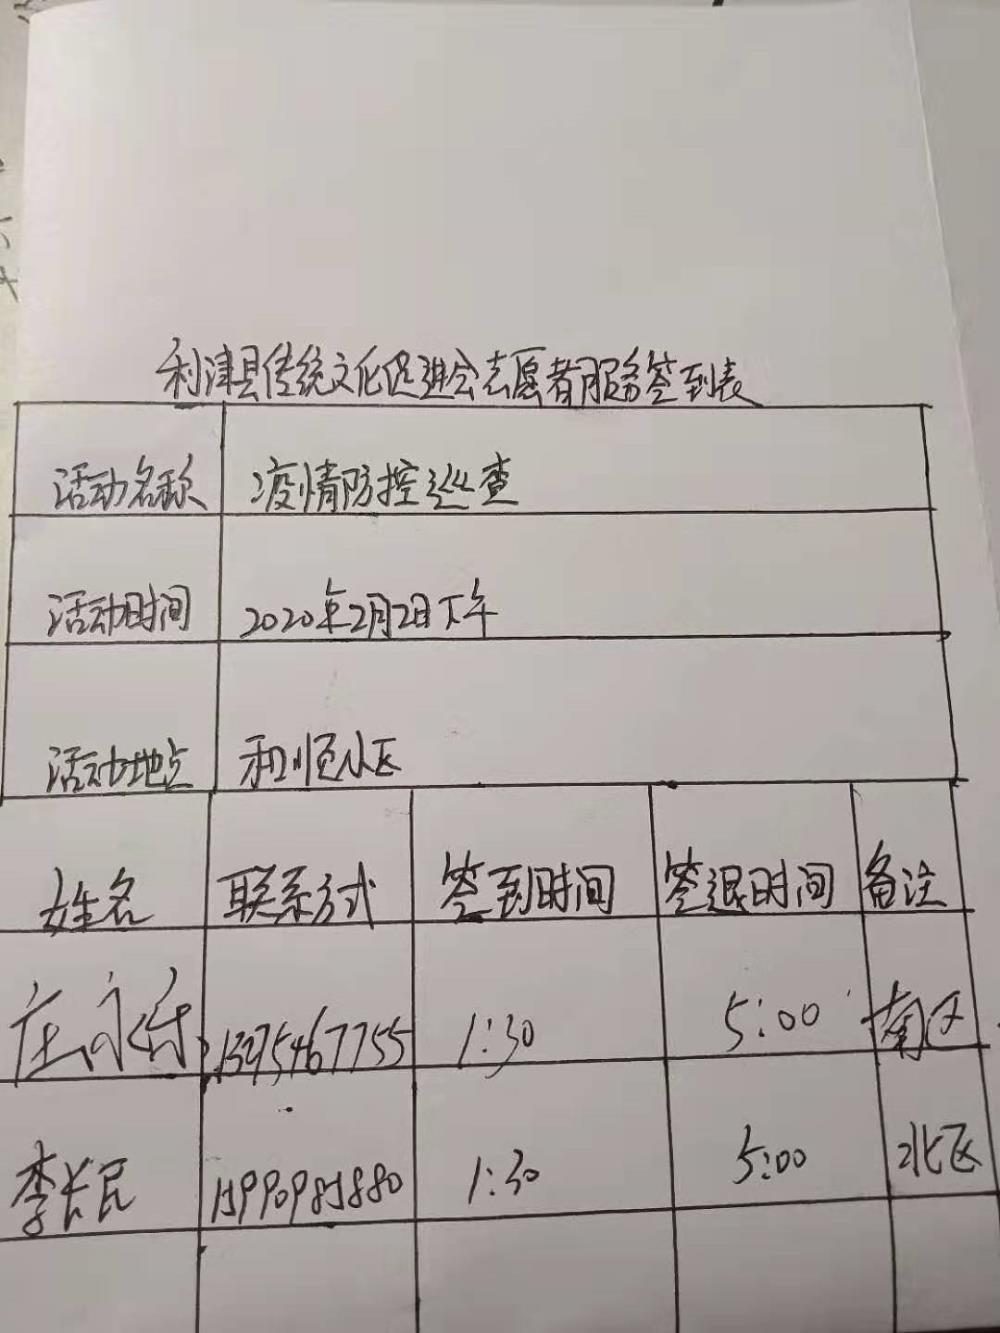 利津县传统文化促进会志愿者服务签到表
活动名称 疫情防控巡查
活动时间 2020年2月2日下午
活动地点 和顺小区
姓名 联系方式 签到时间 签退时间 备注
庄 13275467755 1:30 5:00 南区
李长民 1:30 5:00 北区